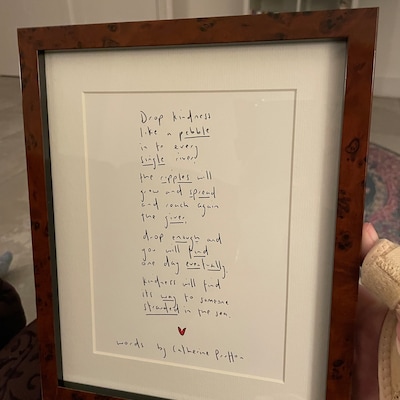 Drop kindness
like a pebble
in to every
single river
the ripples will
grow and spread
and reach again
the giver.
drop enough and
you will find
one day event-ually
kindness will find
its way to someone
stranded in the sea.
words by Catherine